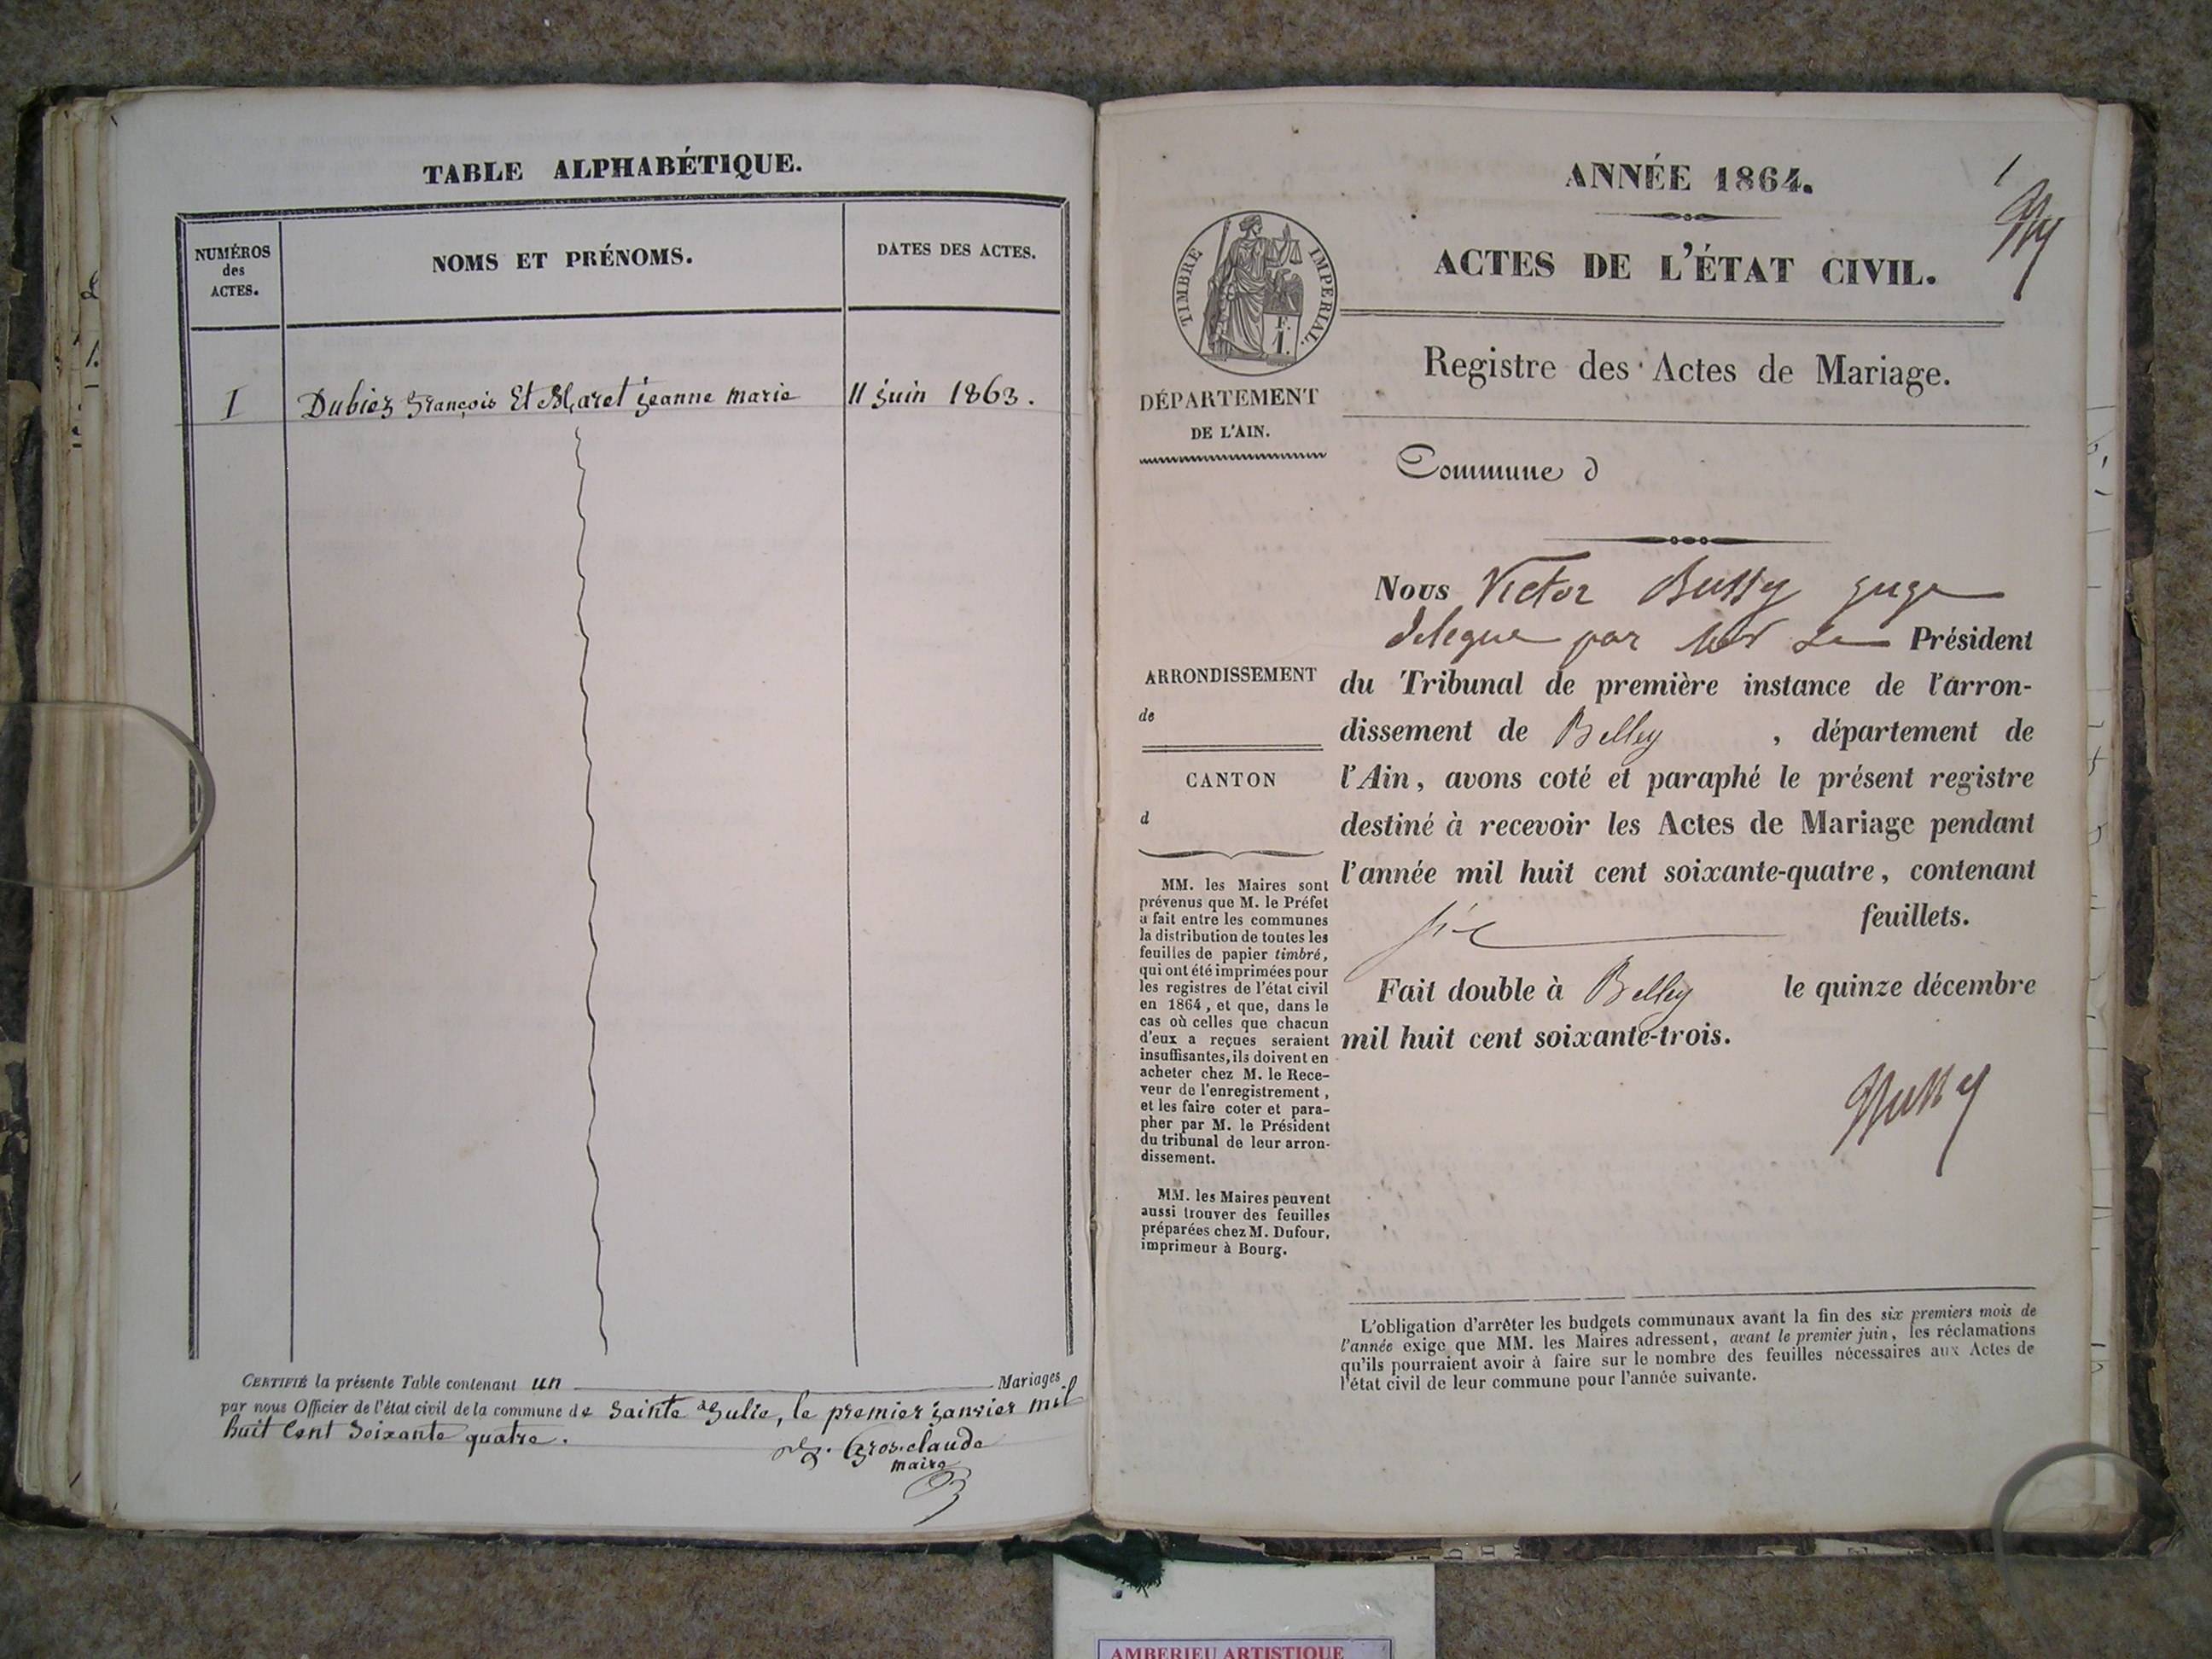 TABLE ALPHABÉTIQUE.
NUMÉROS
des
ACTES.
NOMS ET PRÉNOMS.
DATES DES ACTES.
I
Dubiez François Et Maret jeanne marie
11 juin 1863.
CERTIFIÉ la présente Table contenant un Mariages
par nous Officier de l'état civil de la commune de Sainte Julie, le premier janvier mil
huit Cent Soixante quatre.
Gros.claude
maire
1
ANNÉE 1864.
ACTES DE L'ÉTAT CIVIL.
TIMBRE IMPERIAL.
F.
1.
Registre des Actes de Mariage.
DÉPARTEMENT
DE L'AIN.
Commune d
Nous Victor Bussy juge
délégué par Mr Le Président
du Tribunal de première instance de l'arron-
dissement de Belley , département de
l'Ain, avons coté et paraphé le présent registre
destiné à recevoir les Actes de Mariage pendant
l'année mil huit cent soixante-quatre, contenant
six feuillets.
Fait double à Belley le quinze décembre
mil huit cent soixante-trois.
Bussy
ARRONDISSEMENT
de
CANTON
d
MM. les Maires sont
prévenus que M. le Préfet
a fait entre les communes
la distribution de toutes les
feuilles de papier timbré,
qui ont été imprimées pour
les registres de l'état civil
en 1864, et que, dans le
cas où celles que chacun
d'eux a reçues seraient
insuffisantes, ils doivent en
acheter chez M. le Rece-
veur de l'enregistrement,
et les faire coter et para-
pher par M. le Président
du tribunal de leur arron-
dissement.
MM. les Maires peuvent
aussi trouver des feuilles
préparées chez M. Dufour,
imprimeur à Bourg.
L'obligation d'arrêter les budgets communaux avant la fin des six premiers mois de
l'année exige que MM. les Maires adressent, avant le premier juin, les réclamations
qu'ils pourraient avoir à faire sur le nombre des feuilles nécessaires aux Actes de
l'état civil de leur commune pour l'année suivante.
AMBERIEU ARTISTIQUE